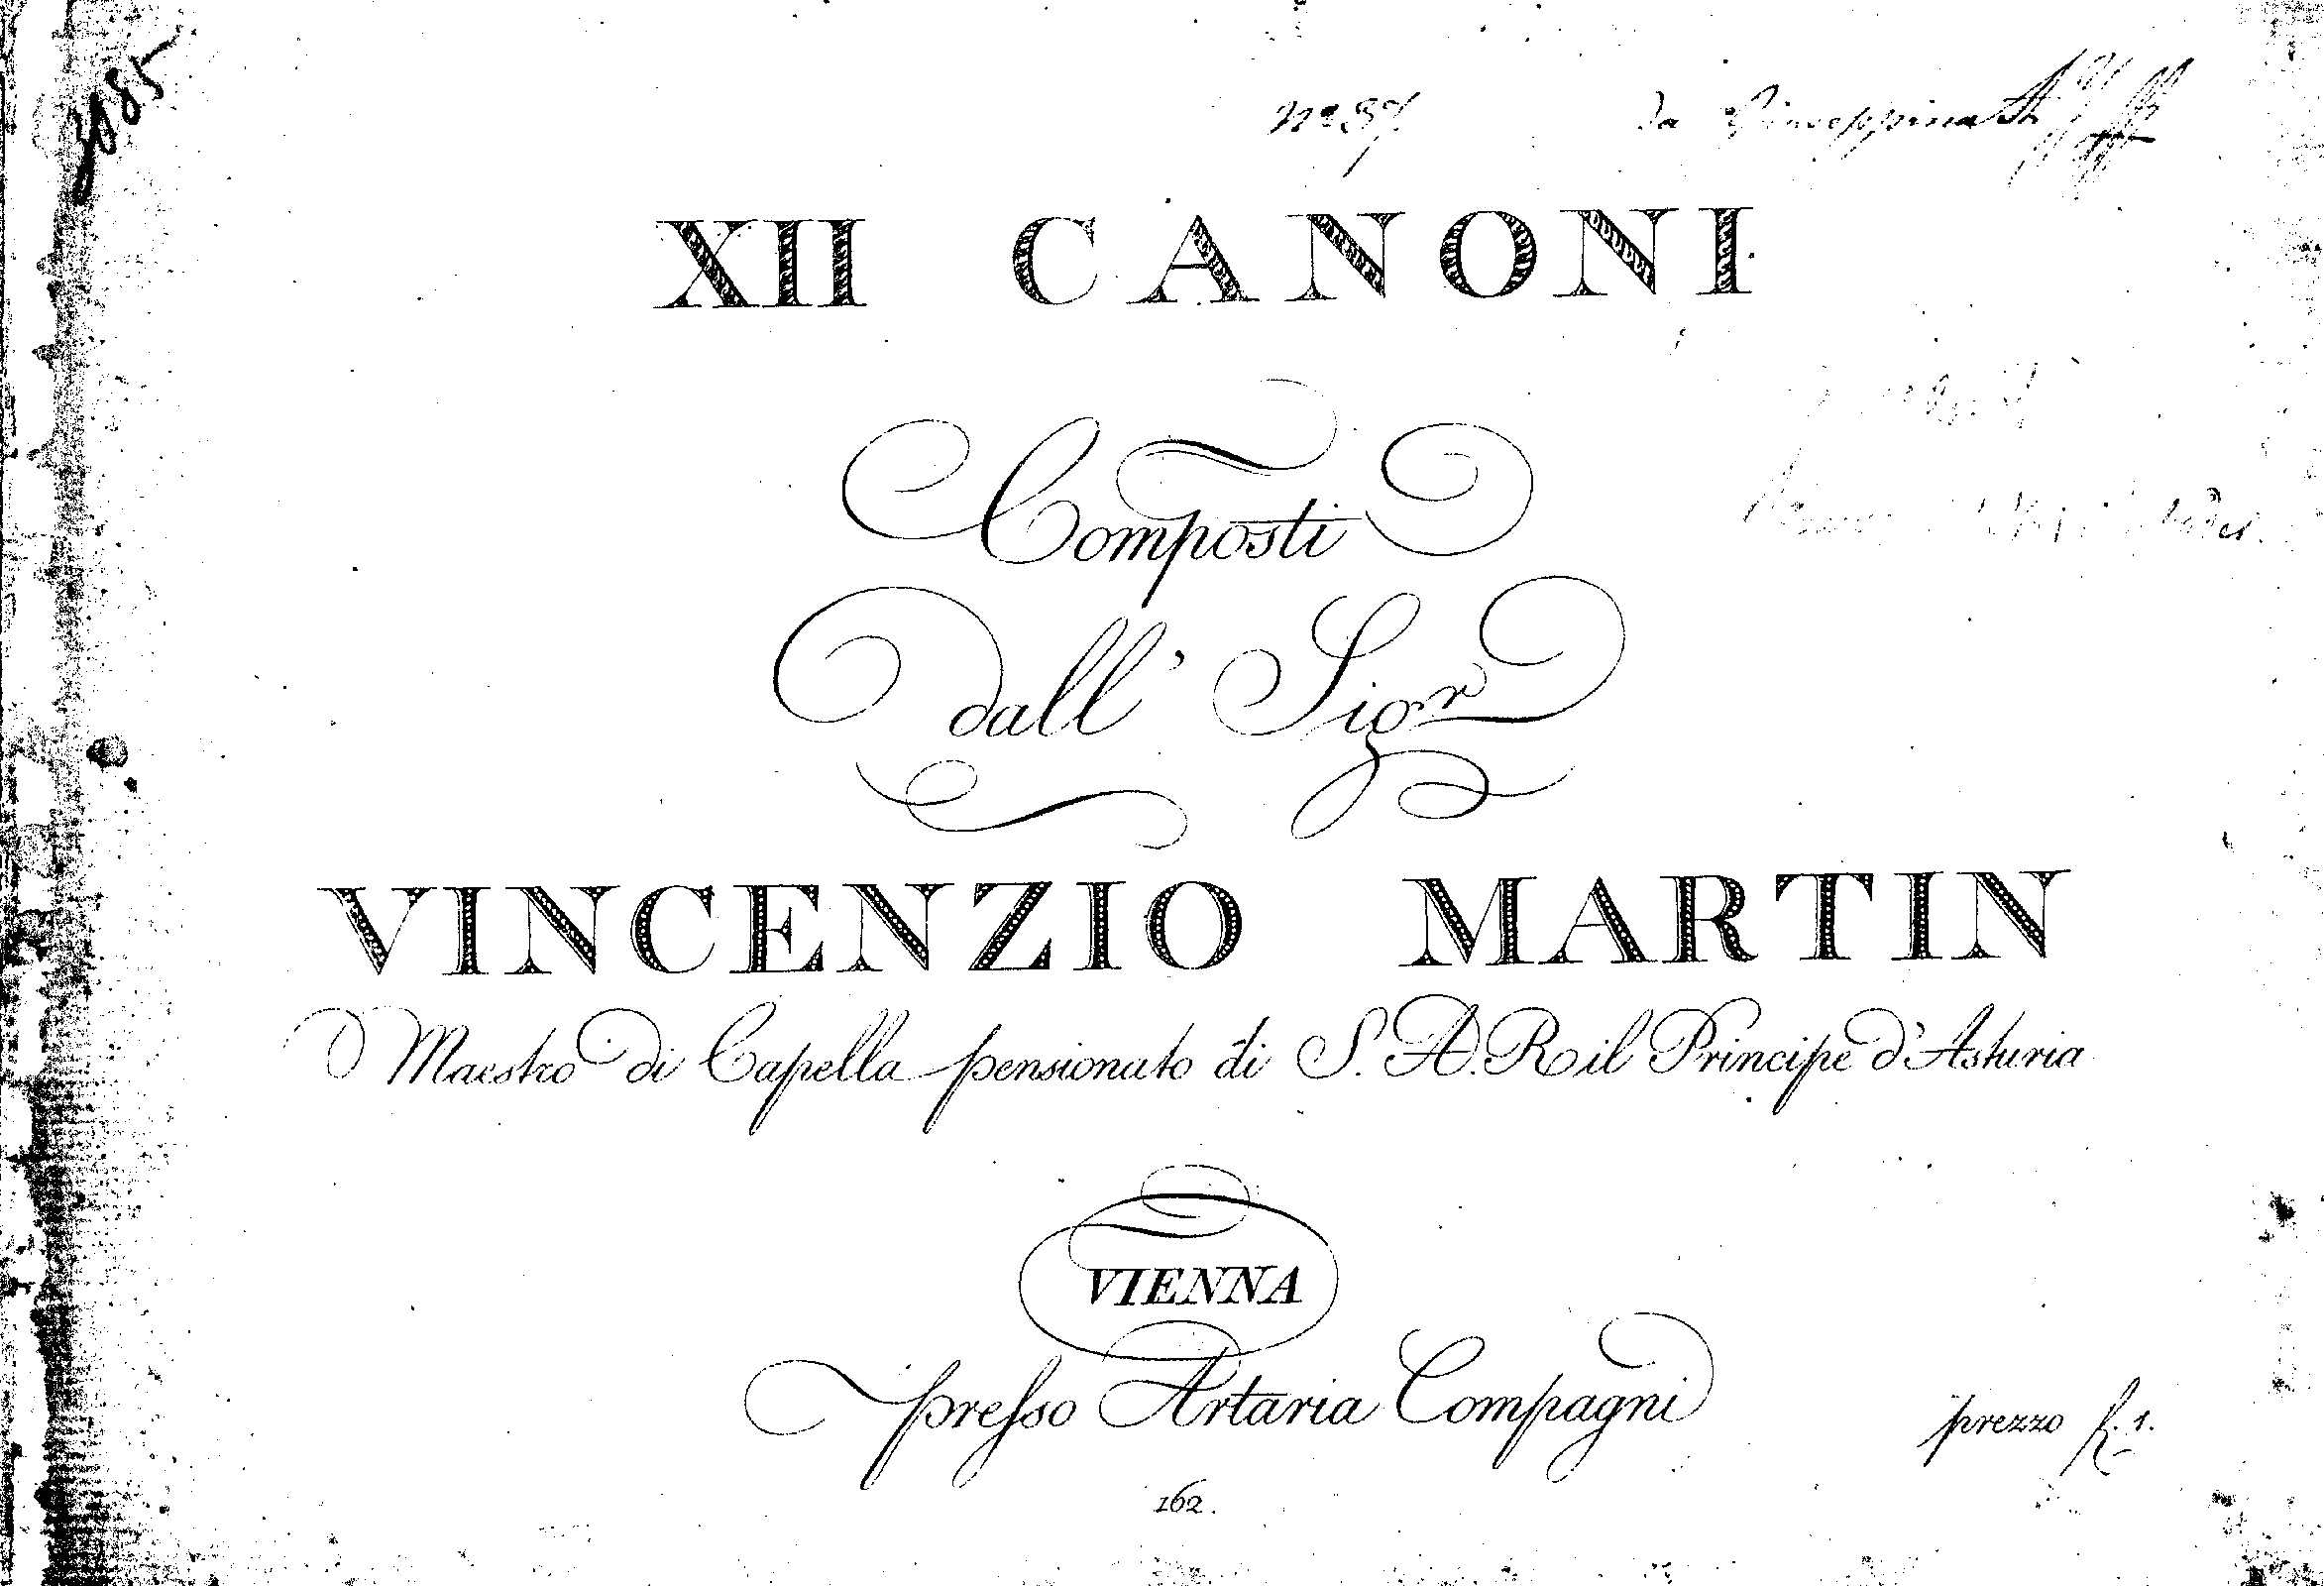 3185
No 87.
da Giuseppina
XII CANONI
Composti
dall' Sigr
VINCENZIO MARTIN
Maestro di Capella pensionato di S. A. R il Principe d'Asturia
VIENNA
presso Artaria Compagni
prezzo f. 1.
162.